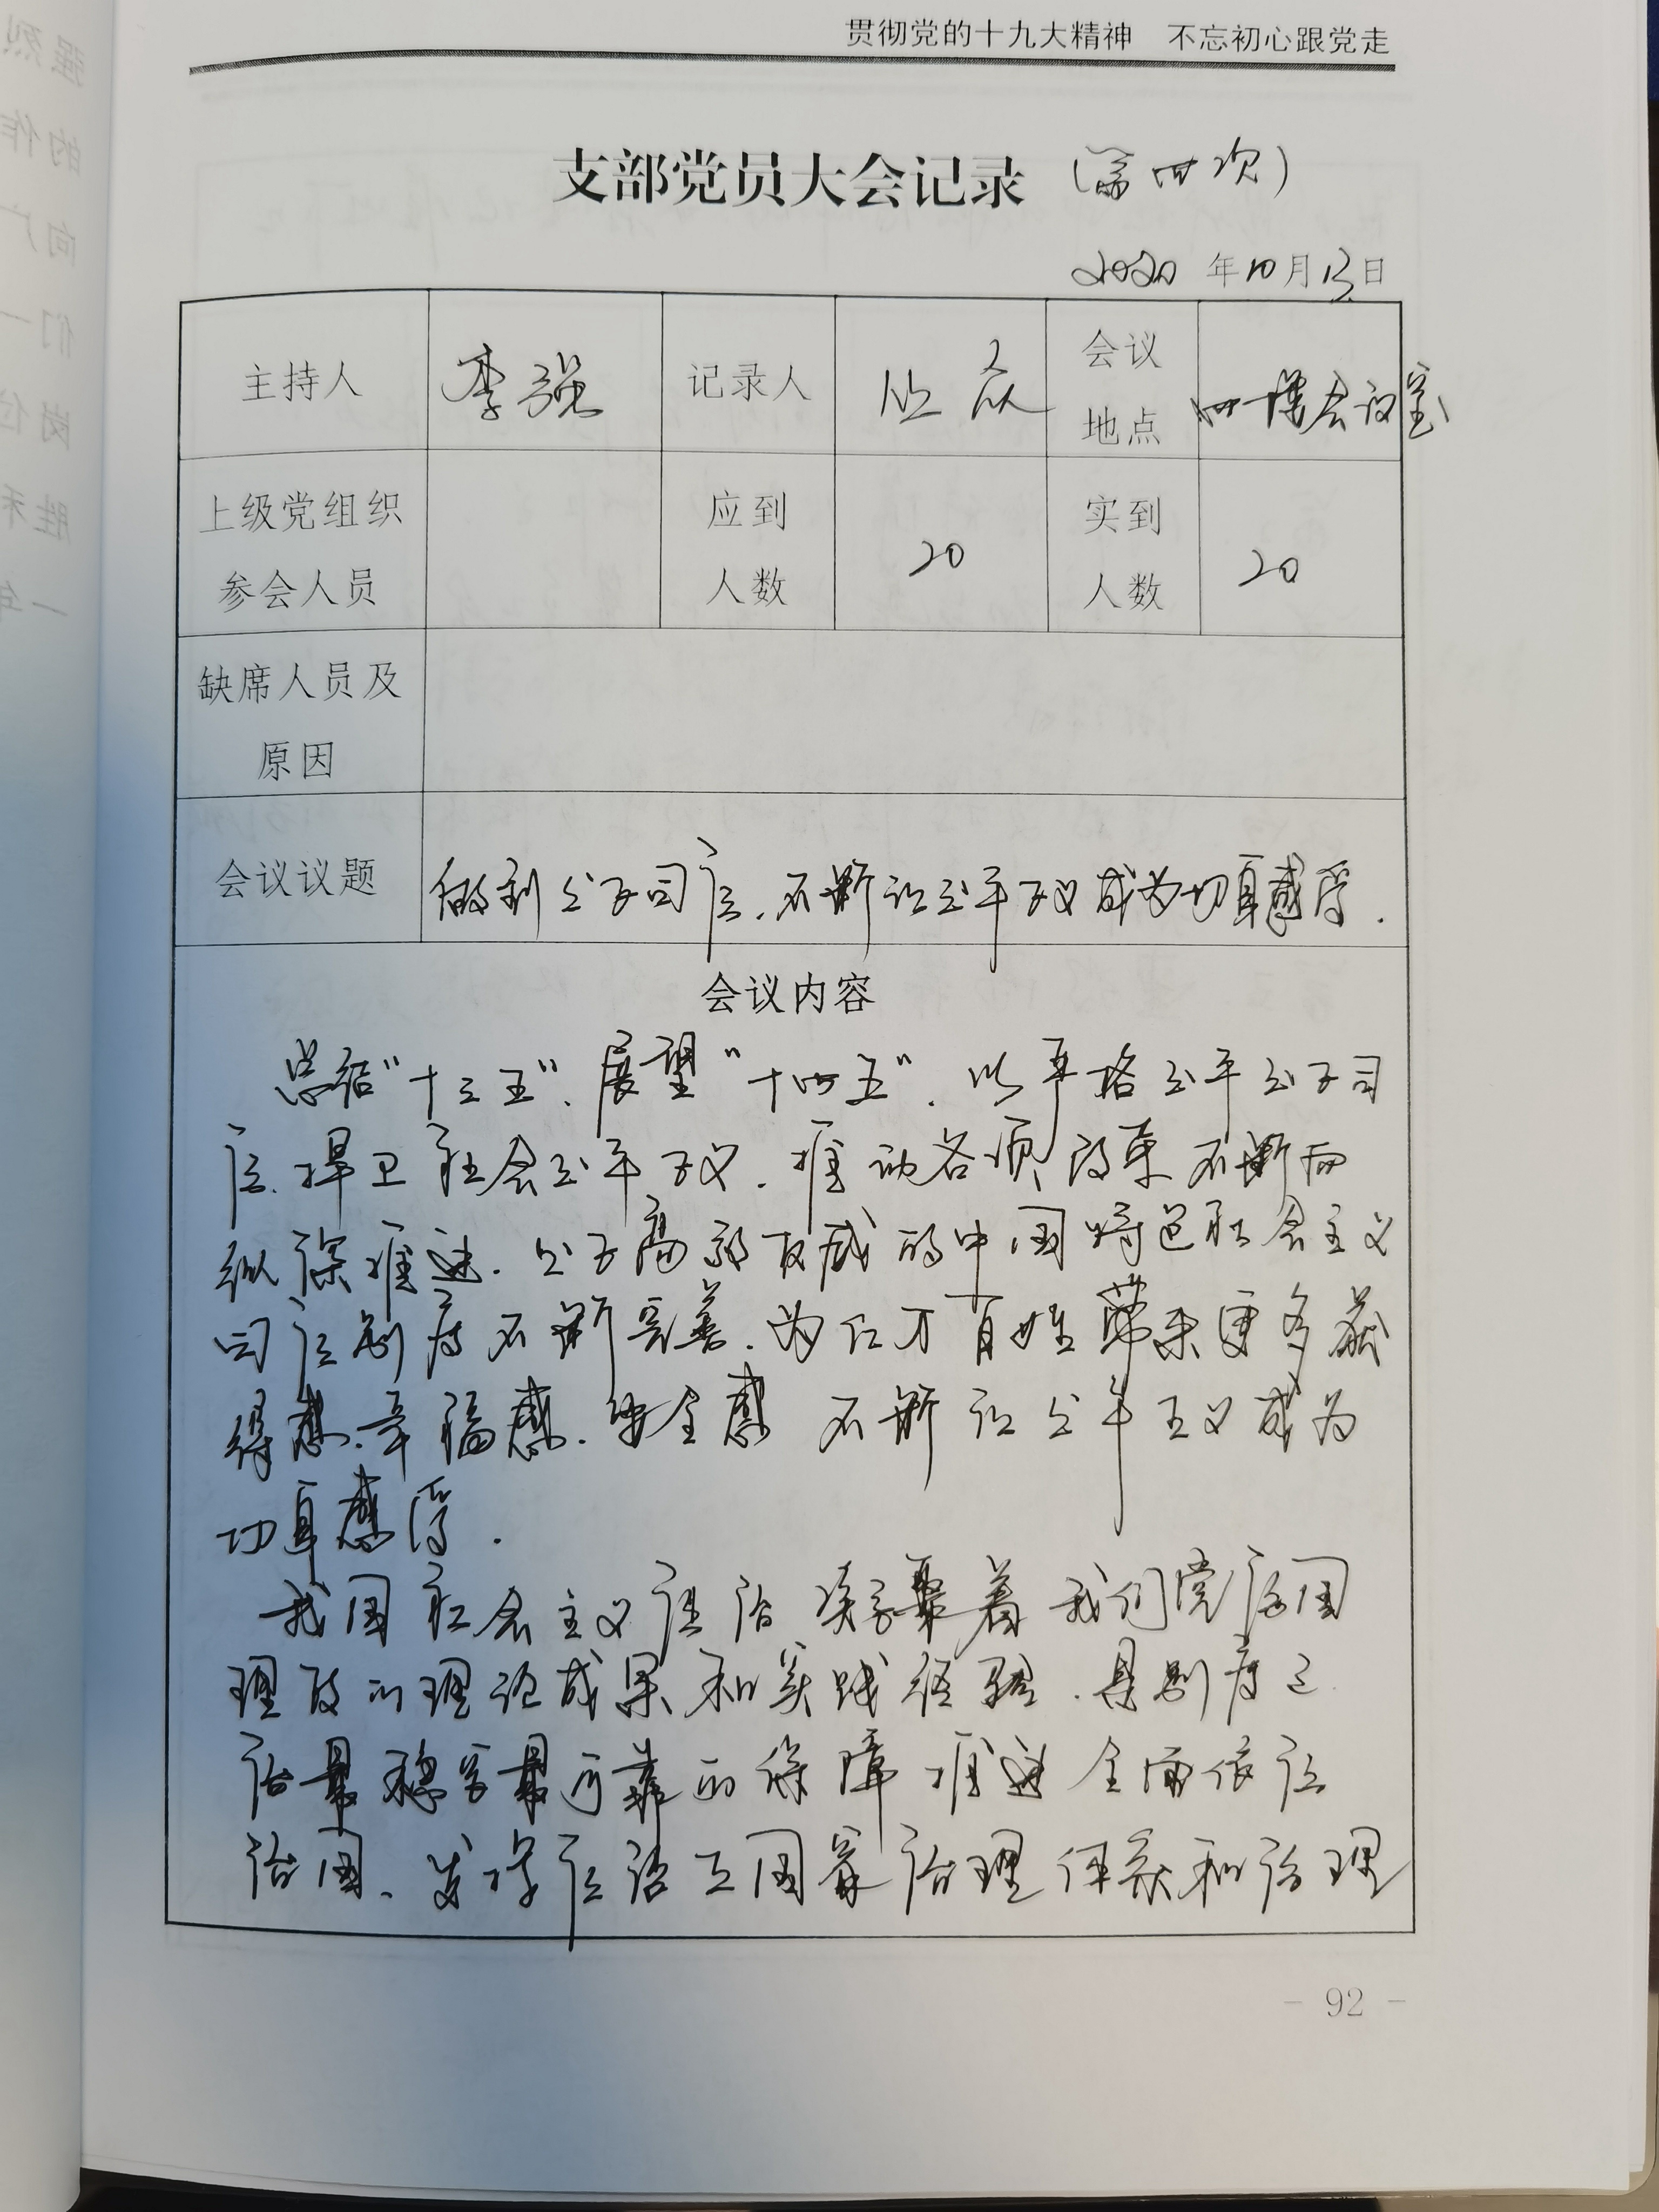 贯彻党的十九大精神 不忘初心跟党走
支部党员大会记录 (第四次)
2020年10月13日
主持人 李强 记录人 众 会议地点 四楼会议室
上级党组织参会人员 应到人数 20 实到人数 20
缺席人员及原因
会议议题 做到公正司法、不断让公平正义成为切身感受.
会议内容
总结"十三五"、展望"十四五". 以严格公平公正司
法. 捍卫社会公平正义. 推动各项政策不断向
纵深推进. 公正高效权威的中国特色社会主义
司法制度不断完善. 为亿万百姓带来更多获
得感、幸福感、安全感 不断让公平正义成为
切身感受.
我国社会主义法治 凝聚着我们党治国
理政的理论成果和实践经验. 是制度之
治最稳定最可靠的保障 推进全面依法
治国、发挥法治在国家治理体系和治理
- 92 -